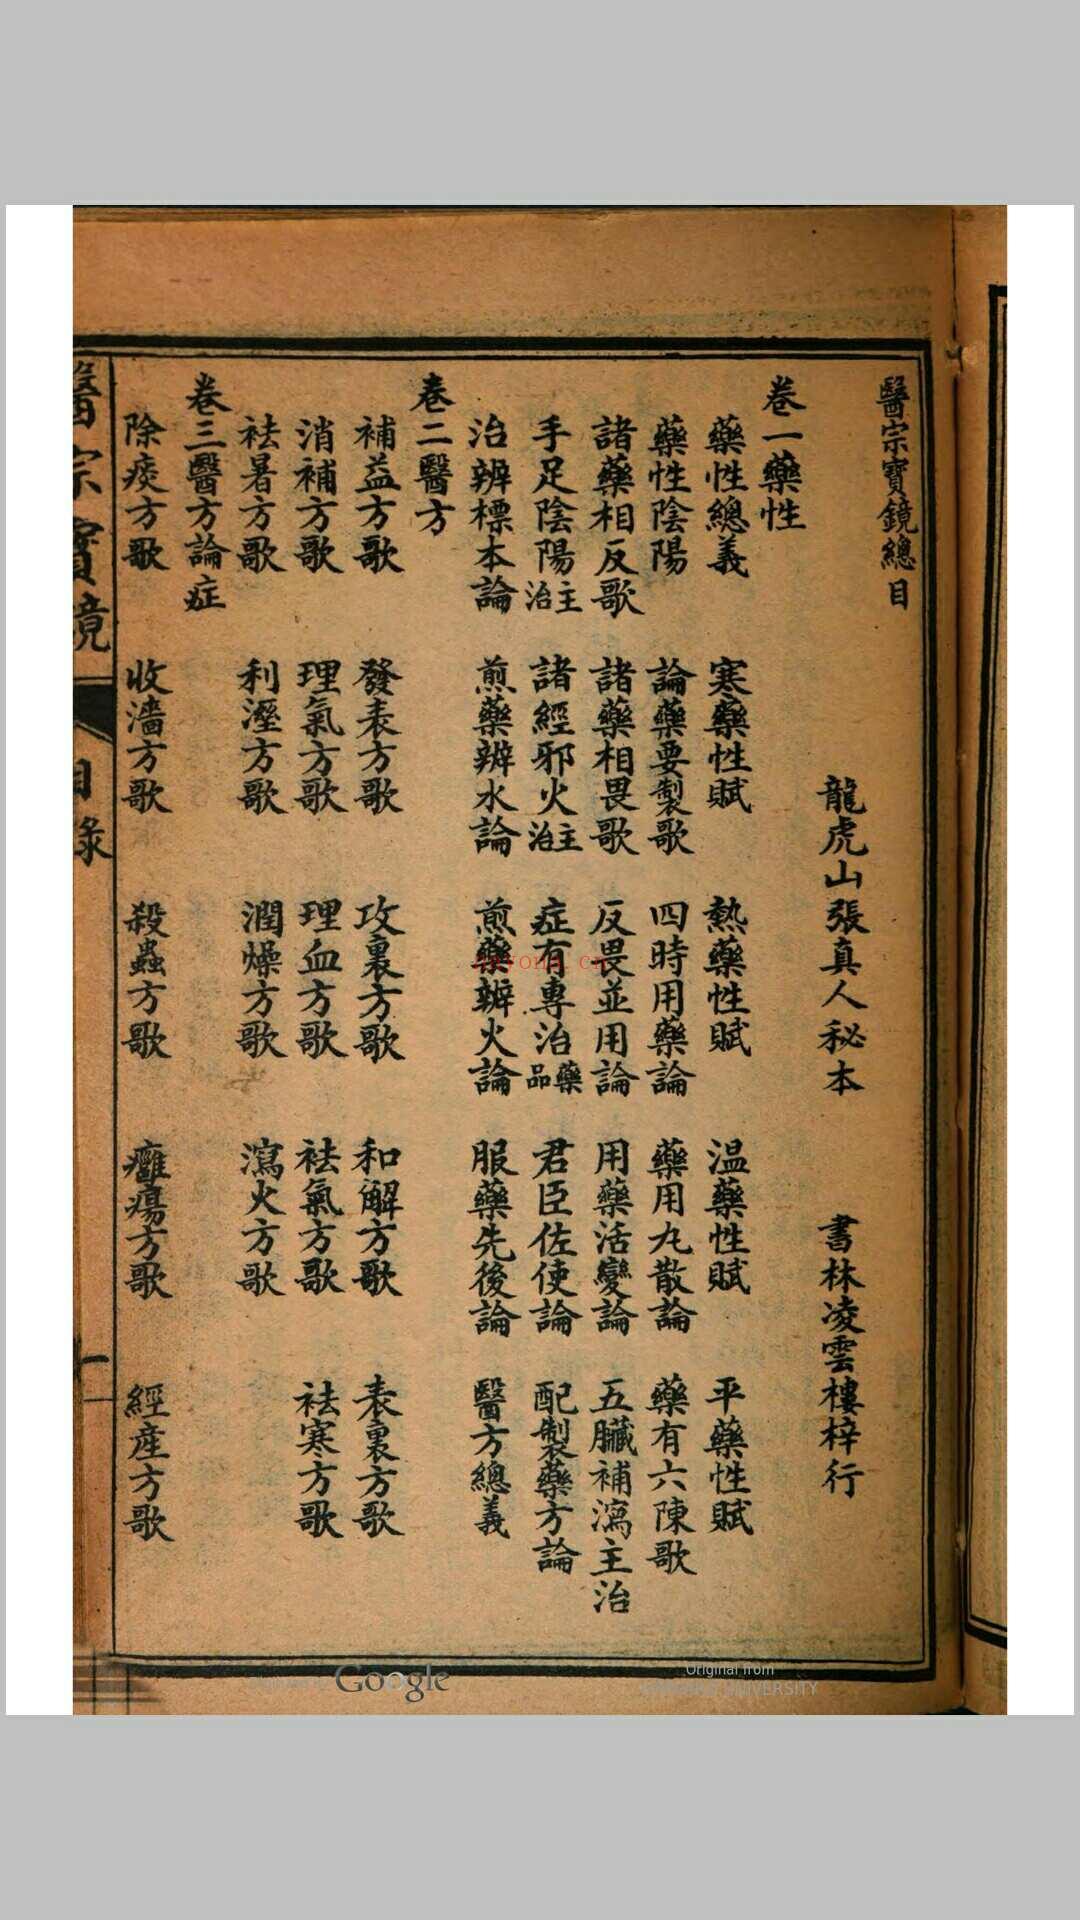 醫宗寶鏡總目
龍虎山張真人秘本　書林凌雲樓梓行
卷一藥性
藥性總義　寒藥性賦　熱藥性賦　温藥性賦　平藥性賦
藥性陰陽　論藥要製歌　四時用藥論　藥用丸散論　藥有六陳歌
諸藥相反歌　諸藥相畏歌　反畏並用論　用藥活變論　五臟補瀉主治
手足陰陽主治　諸經邪火主治　症有專治藥品　君臣佐使論　配製藥方論
治辨標本論　煎藥辨水論　煎藥辨火論　服藥先後論　醫方總義
卷二醫方
補益方歌　發表方歌　攻裏方歌　和解方歌　表裏方歌
消補方歌　理氣方歌　理血方歌　祛氣方歌　祛寒方歌
祛暑方歌　利溼方歌　潤燥方歌　瀉火方歌
卷三醫方論症
除痰方歌　收濇方歌　殺蟲方歌　癰瘍方歌　經産方歌
醫宗寶鏡　目錄　一
Google
Original from